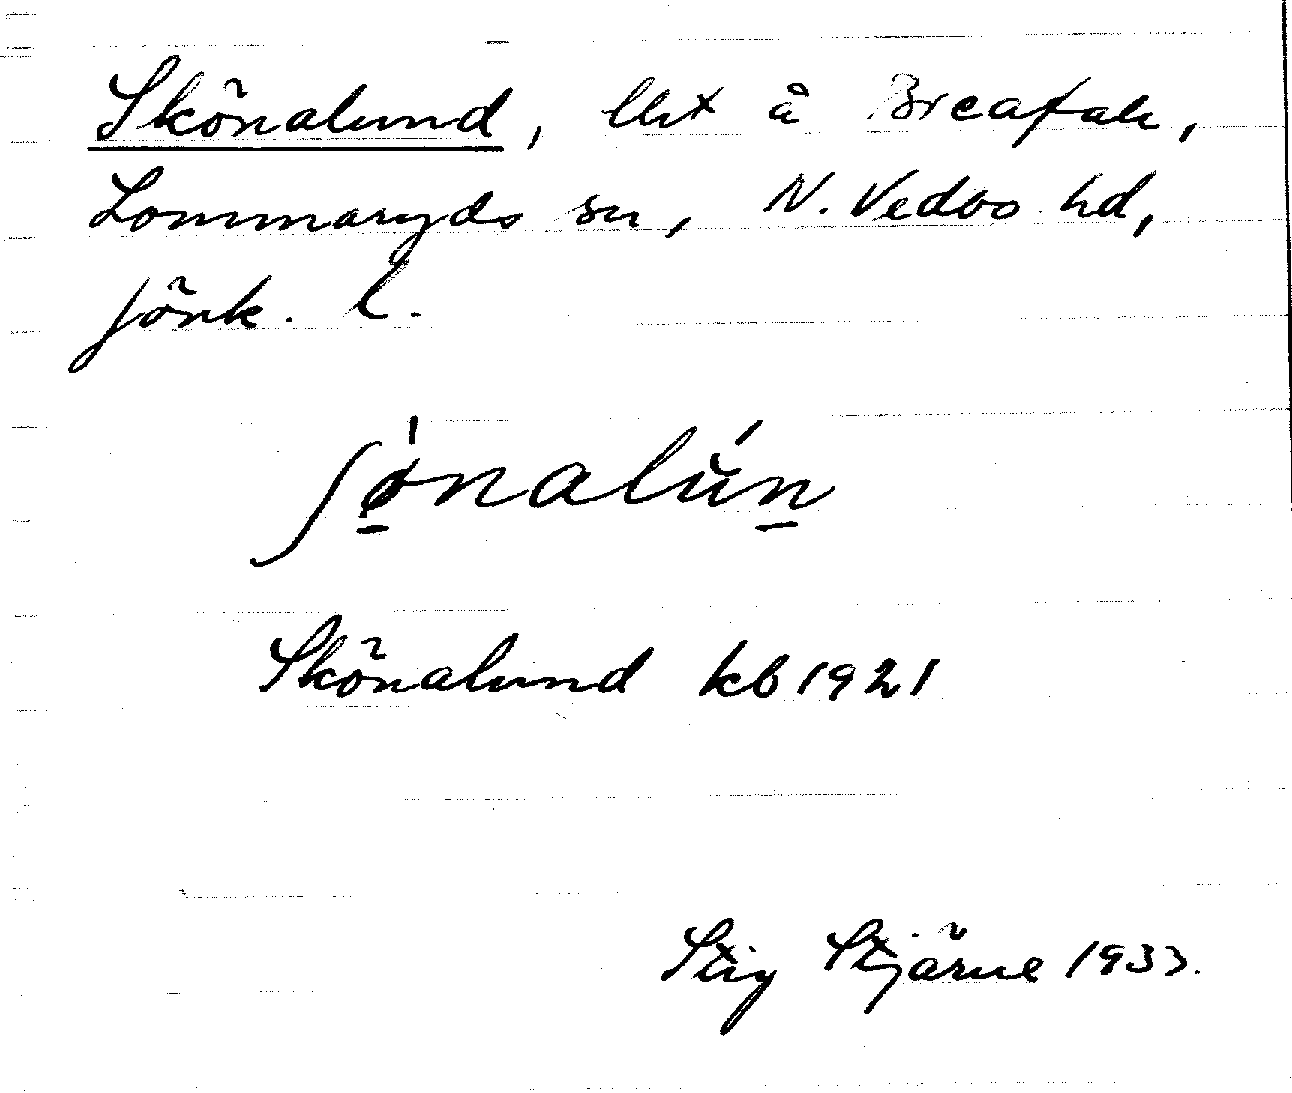 Skönalund, lht å Breafall,
Lommaryds sn, N. Vedbo hd,
Jönk. l.
ʃø̱nalún̠
Skönalund kb 1921
Stig Stjärne 1933.